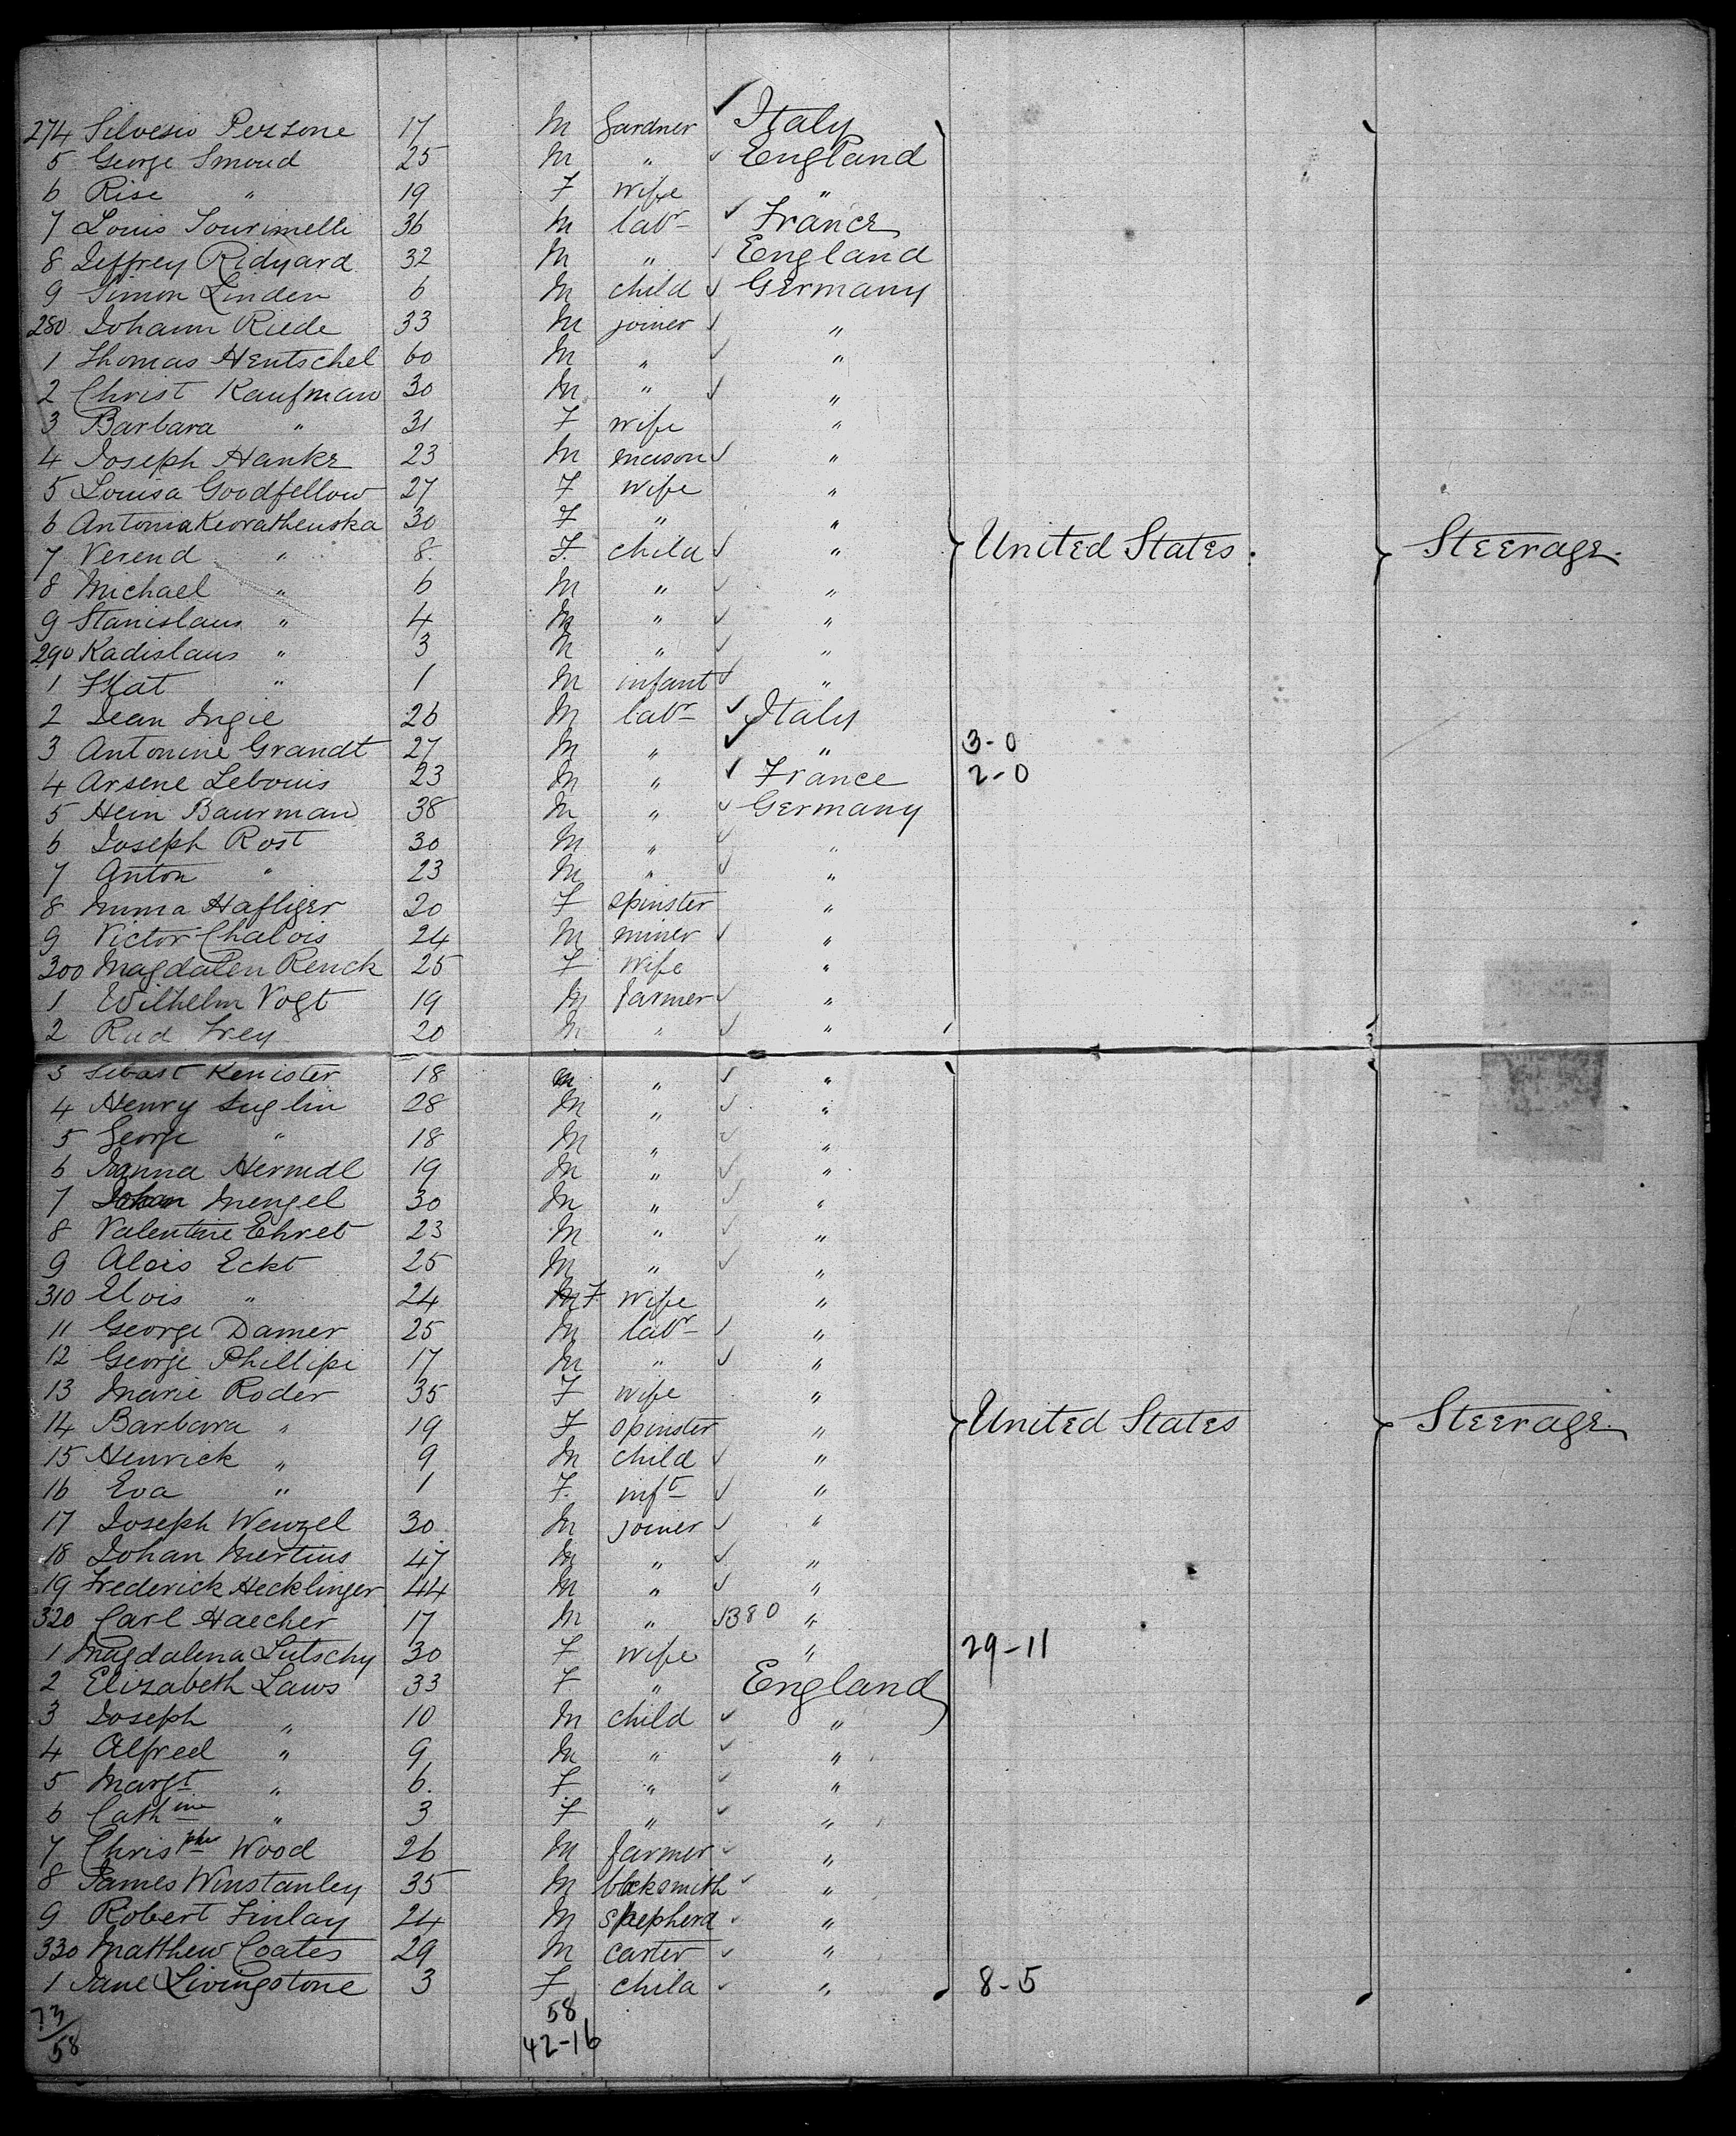 274 Silvesio Perzone 17 M Gardner ✓ Italy
5 George Smoud 25 M " ✓ England
6 Rise " 19 F wife "
7 Louis Tourimelli 36 M labr ✓ France
8 Jeffrey Ridyard 32 M " ✓ England
9 Simon Linden 6 M child ✓ Germany
280 Johann Riede 33 M joiner ✓ "
1 Thomas Hentschel 60 M " ✓ "
2 Christ Kaufman 30 M " ✓ "
3 Barbara " 31 F wife "
4 Joseph Hanke 23 M mason ✓ "
5 Louisa Goodfellow 27 F wife "
6 Antonia 30 F " "
7 Verend " 8 F child ✓ " United States. Steerage.
8 Michael " 6 M " ✓ "
9 Stanislaus " 4 M " ✓ "
290 Kadislaus " 3 M " ✓ "
1 " 1 M infant ✓ "
2 Jean Ingie 26 M labr ✓ Italy
3 Antonine Grandt 27 M " ✓ " 3-0
4 Arsene Lebouis 23 M " ✓ France 2-0
5 Hein Baurman 38 M " ✓ Germany
6 Joseph Rost 30 M " ✓ "
7 Anton " 23 M " ✓ "
8 Mima Hafliger 20 F spinster "
9 Victor Chalois 24 M miner ✓ "
300 Magdalen Renck 25 F wife "
1 Wilhelm Vogt 19 M farmer ✓ "
2 Rud Frey 20 M " ✓ "
3 Sebast Kenister 18 M " ✓ "
4 Henry Suglin 28 M " ✓ "
5 George " 18 M " ✓ "
6 Hermdl 19 M " ✓ "
7 Johan Mengel 30 M " ✓ "
8 Valentine Ehret 23 M " ✓ "
9 Alois Eckt 25 M " ✓ "
310 Elois " 24 F wife "
11 George Damer 25 M labr ✓ "
12 George Phillipi 17 M " ✓ "
13 Marie Roder 35 F wife "
14 Barbara " 19 F spinster " United States Steerage.
15 Henrick " 9 M child ✓ "
16 Eva " 1 F. inft ✓ "
17 Joseph Wenzel 30 M joiner ✓ "
18 Johan Mertins 47 M " ✓ "
19 Frederick Hecklinger 44 M " ✓ "
320 Carl Haecher 17 M " ✓ 380 "
1 Magdalena Lutschy 30 F wife " 29-11
2 Elizabeth Laws 33 F " England
3 Joseph " 10 M child ✓ "
4 Alfred " 9 M " ✓ "
5 Margt " 6. F " ✓ "
6 Cathine " 3 F " ✓ "
7 Christpher Wood 26 M farmer ✓ "
8 James Winstanley 35 M blcksmith ✓ "
9 Robert Finlay 24 M shepherd ✓ "
330 Matthew Coates 29 M carter ✓ "
1 Jane Livingstone 3 F child ✓ " 8-5
73/58 58
42-16